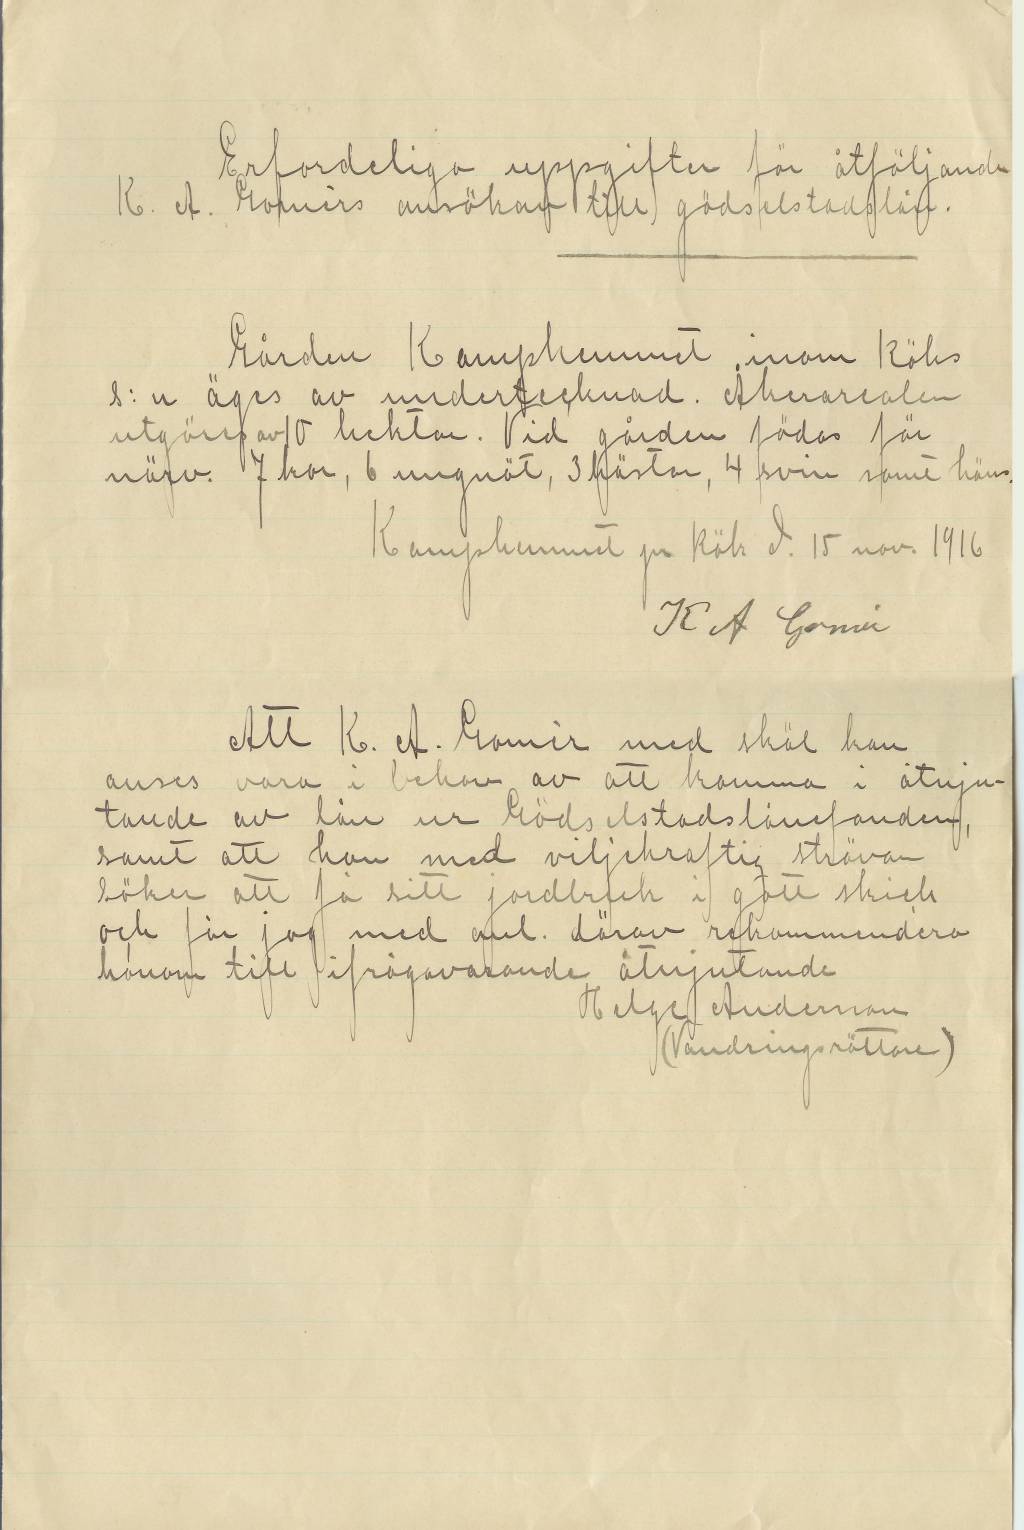 Erforderliga uppgifter för åtföljande
K. A. Gomérs ansökan till gödselstadslån.
Gården Kamphemmet inom Köks
s:n äges av undertecknad. Åkerarealen
utgöres av 10 hektar. Vid gården födas för
närv. 7 kor, 6 ungnöt, 3 hästar, 4 svin samt höns.
Kamphemmet pr Kök d. 15 nov. 1916
K A Gomér
Att K. A. Gomér med skäl kan
anses vara i behov av att komma i åtnju-
tande av lån ur Gödselstadslånefonden,
samt att han med viljekraftig strävan
söker att få sitt jordbruk i gott skick
och får jag med anl. därav rekommendera
honom till ifrågavarande åtnjutande
Helge Anderson
(Vandringsrättare)